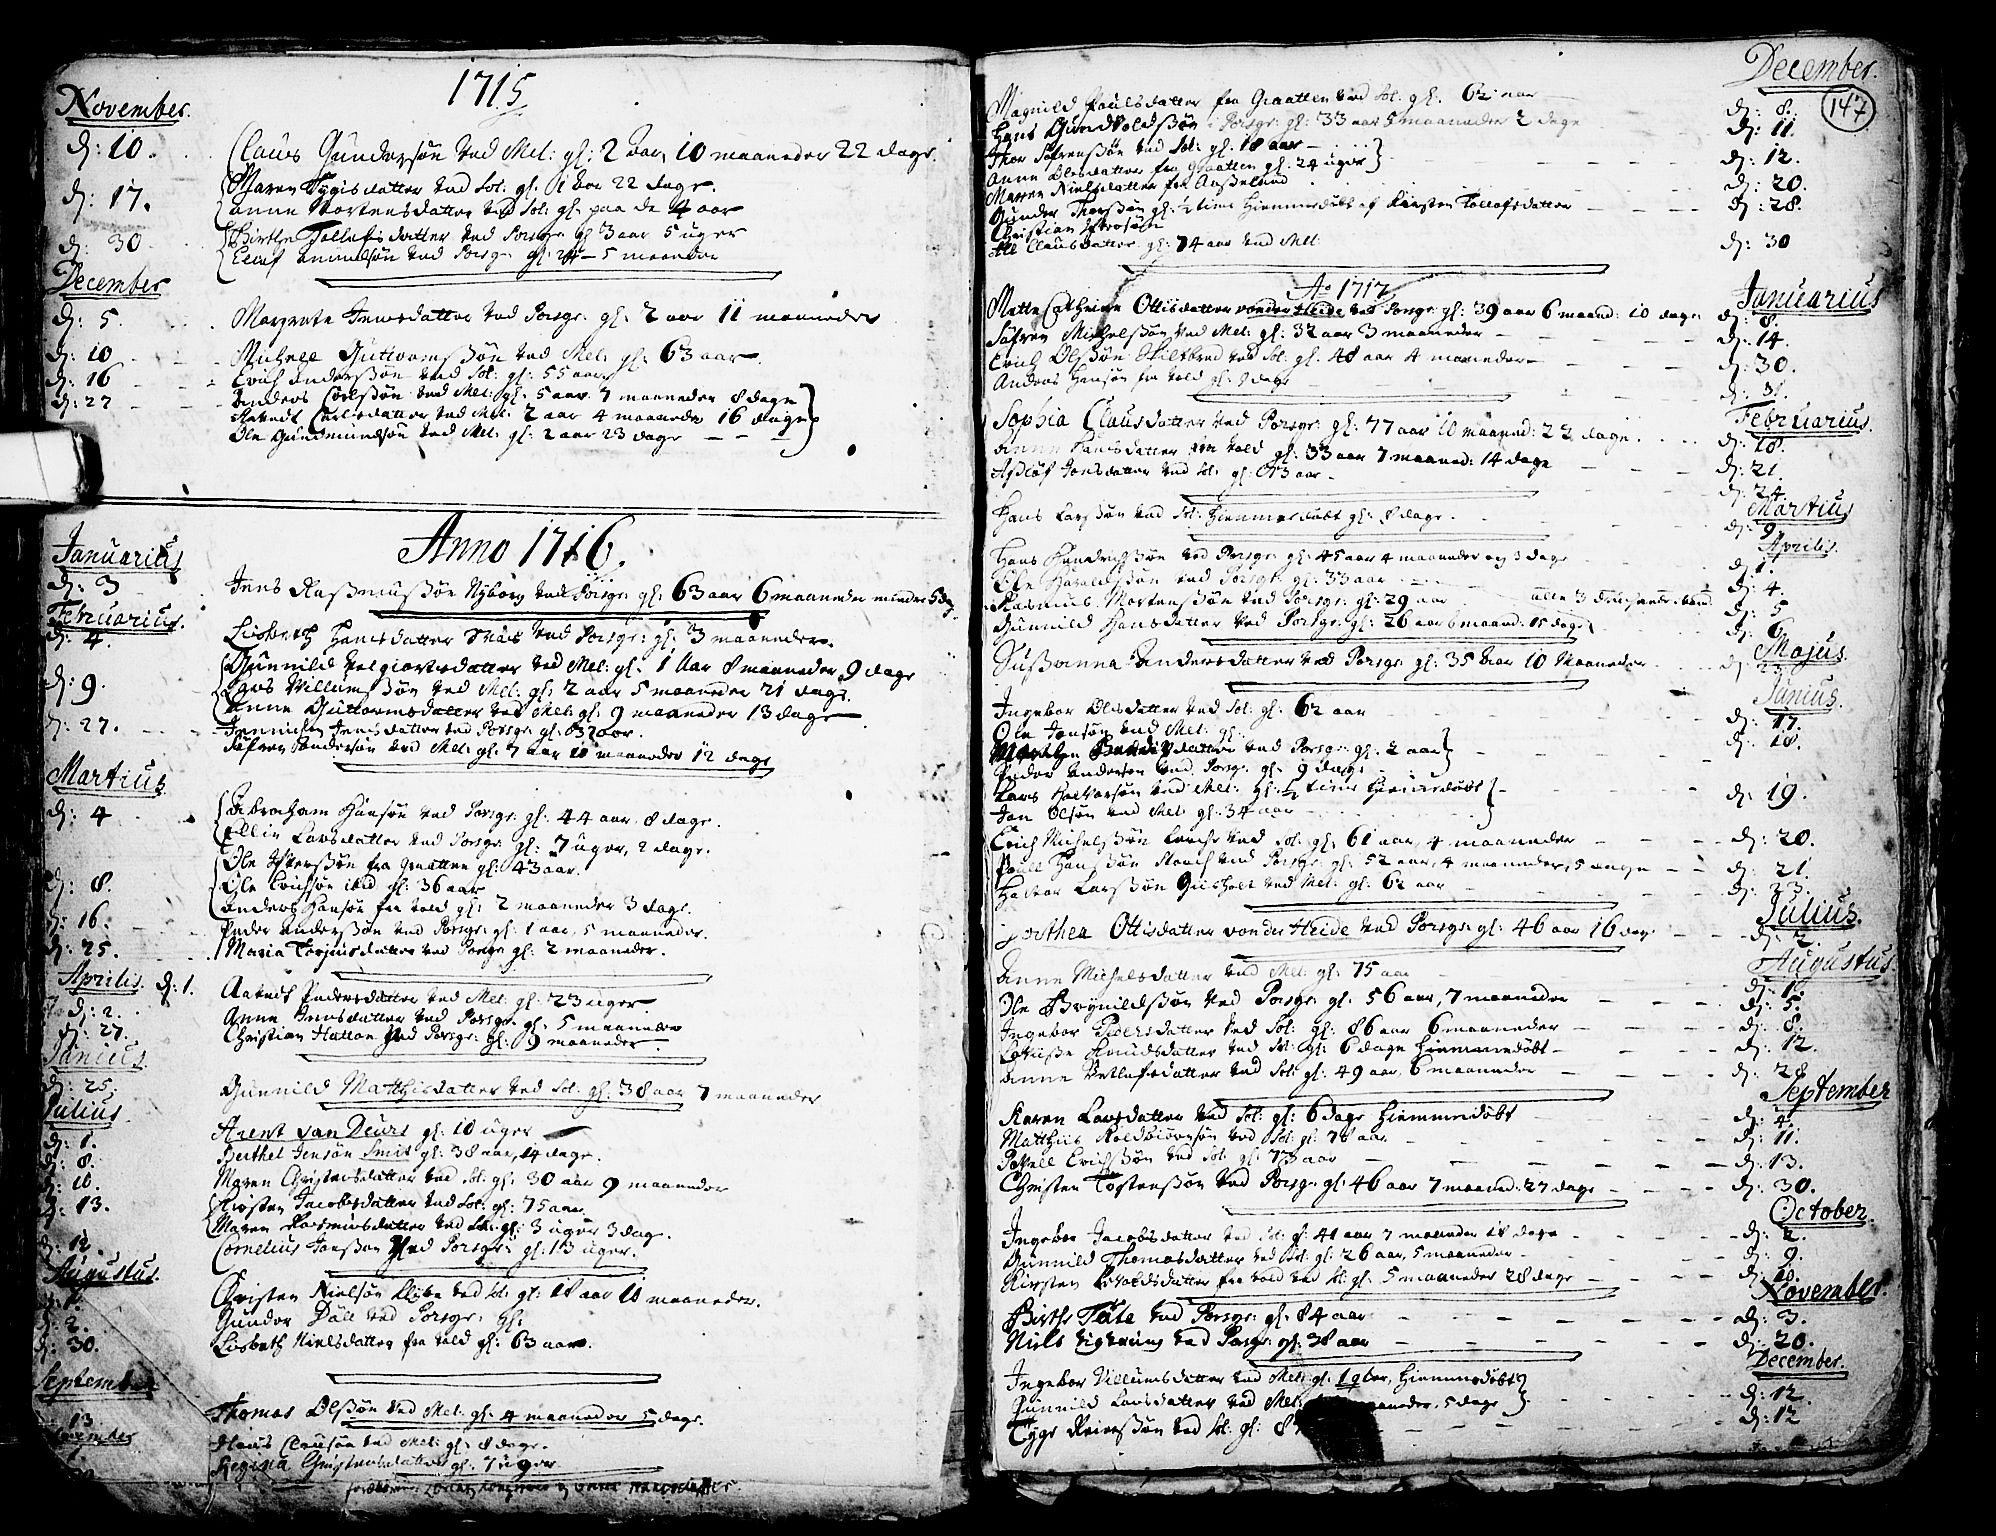 1715
November.
d: 10. Claus Gundersøn ved Mel: gl: 2 Aar, 10 maaneder 22 dage.
d: 17. Maren Tygisdatter ved Sol: gl: 1 Aar 22 dage.
Anne Mortensdatter ved Sol: gl: paa de 4 aar
d: 30 Birthe Tollefsdatter ved Porsgr: gl: 3 aar 5 uger
Amundsøn ved Porsgr: gl: 5 maaneder
December
d: 5. Margrete Jensdatter ved Porsgr: gl: 2 aar 11 maaneder
d: 10 Michell Guttormssøn ved Mel: gl: 63 aar.
d: 16 Erich Anderssøn ved Sol: gl: 55 aar
d: 27 Anders Carlssøn ved Mel: gl: 5 aar 7 maaneder 8 dage
Carlsdatter ved Mel: 2 aar 4 maaneder 16 dage
Ole Gudmundsøn ved Mel: gl: 2 aar 23 dage
Anno 1716.
Januarius
d: 3 Jens Rasmussøn Nyborg ved Porsgr: gl: 63 aar 6 maaneder mindre 5 dag
Februarius.
d: 4. Lisbeth Hansdatter ved Porsgr: gl: 3 maaneder.
d: 9. Gunnild datter ved Mel: gl: 1 Aar 8 maaneder 9 dage
Lars Villumssøn ved Mel: gl: 2 aar 5 maaneder 21 dage.
Anne Guttormsdatter ved Mel: gl: 9 maaneder 13 dage
d: 27. Jensdatter ved Porsgr: gl:
Søfren Andersøn ved Mel: gl: 7 aar 10 maaneder 12 dage
Martius.
d: 4 Abraham Hansøn ved Porsgr: gl: 44 aar 8 dage.
Ellin Larsdatter ved Porsgr: gl: 7 uger, 2 dage.
Ole fra Graatten gl: 43 aar.
d: 8. Ole Erichsøn ibid gl: 36 aar
Anders Hansøn fra Vold gl: 2 maaneder 3 dage.
d: 16. Peder Andersøn ved Porsgr: gl: 1 aar 5 maaneder.
d: 25. Maria Torjusdatter ved Porsgr: gl: 2 maaneder.
Aprilis. d: 1. Pedersdatter ved Mel: gl: 23 uger
d: 2. Anne Jensdatter ved Porsgr: gl: 5 maaneder
d: 27. Christian Hatton ved Porsgr: gl: 9 maaneder.
Junius.
d: 25. Gunnild Matthisdatter ved Sol: gl: 38 aar 7 maaneder
Julius
d: 1. Arent van Deurs gl: 10 uger
d: 8. Berthel Jensøn Smit gl: 38 aar, 14 dage.
d: 10. Maren Christensdatter ved Sol: gl: 30 aar 9 maaneder
d: 13. Kirsten Jacobsdatter ved Sol: gl: 75 aar.
Maren Rasmusdatter ved Sol: gl: 3 uger 3 dage.
d: 12. Cornelius Jonssøn ved Porsgr: gl: 13 uger.
Augustus.
d: 1. Christen Nielsøn ved Sol: gl: 18 aar 10 maaneder.
d: 2. Gunder Dåll ved Porsgr: gl:
d: 30. Lisbeth Nielsdatter fra Vold gl: 63 aar.
September
13 Thomas Olssøn ved Mel: gl: 4 maaneder 5 dage.
November
1. Claus Clausøn ved Mel: gl: 8 dage.
Regina Christensdatter gl: 7 uger
December.
147
Magnild Poulsdatter fra Graatten ved Sol: gl: 62 aar d: 8.
Hans Gundvoldssøn Porsgr: gl: 33 aar 5 maaneder 2 dage d: 11.
Thor Søfrenssøn ved Sol: gl: 18 aar d: 12.
Anne Olesdatter fra Graatten gl: 24 uger
Maren Nielsdatter fra d: 20.
Gunder Thorssøn gl: ½ time Hiemmedøbt af Kirsten Tollofsdatter d: 28.
Christian
Clausdatter gl: 74 aar ved Mel: d: 30
Ao 1717
Januarius
Mette Cathrine Ottisdatter vonder Heide ved Porsgr: gl: 39 aar 6 maand: 10 dage d: 8.
Søfren Michelssøn ved Mel: gl: 32 aar 3 maaneder d: 14.
Erich Olssøn ved Sol: gl: 48 aar 4 maaneder d: 30.
Anders Hansøn fra Vold gl: 8 dage d: 31.
Februarius.
Sophia Clausdatter ved Porsgr: gl: 77 aar 10 maaned: 22 dage d: 18.
Anne Hansdatter fra Vold gl: 33 aar 7 maaned: 14 dage d: 21.
Jonsdatter ved Sol: gl: 83 aar d: 24.
Martius
Hans Larssøn ved Sol: Hiemmedøbt gl: 8 dage. d: 9.
Aprilis.
Hans Hendrichssøn ved Porsgr: gl: 45 aar 4 maaneder og 3 dage d: 1.
Ole Haraldssøn ved Porsgr: gl: 33 aar d: 4.
Rasmus Mortenssøn ved Porsgr: gl: 29 aar alle 3 d: 5
Gunnild Hansdatter ved Porsgr: gl: 26 aar 6 maand: 15 dage d: 6
Majus.
Sussanna Andersdatter ved Porsgr: gl: 35 aar 10 Maaneder d: 23.
Junius.
Ingebor Olsdatter ved Sol: gl: 62 aar d: 17.
Ole Jonsøn ved Mel: gl: d: 18.
datter ved Porsgr: gl: 2 aar
Peder Andersøn ved Porsgr: gl: 9 dage
Lars Halvorsøn ved Mel: gl: ½ time Hiemmedøbt d: 19.
Jon Olsøn ved Mel: gl: 34 aar
Erich Michelssøn ved Sol: gl: 61 aar, 4 maaneder d: 20.
Povell Hanssøn ved Porsgr: gl: 52 aar, 4 maaneder, 5 dage d: 21.
Halvor Larssøn ved Mel: gl: 62 aar d: 23.
Julius.
Dorthea Ottisdatter vonder Heide ved Porsgr: gl: 46 aar 16 dage d: 2.
Augustus
Anne Michelsdatter ved Mel: gl: 75 aar d: 1.
Ole Brynildssøn ved Porsgr: gl: 56 aar, 7 maaneder d: 5.
Ingebor Pedersdatter ved Sol: gl: 86 aar 6 maaneder d: 8.
Knudsdatter ved Sol: gl: 6 dage Hiemmedøbt d: 12.
Anne Detlefsdatter ved Sol: gl: 49 aar, 6 maaneder d: 28
September
Karen Larsdatter ved Sol: gl: 6 dage Hiemmedøbt d: 4.
Matthis Koldbiørnsøn ved Sol: gl: 78 aar d: 11.
Povell Erichssøn ved Sol: gl: 73 aar d: 13.
Christen Tostenssøn ved Porsgr: gl: 46 aar 7 maaned: 27 dage d: 30.
October.
Ingebor Jacobsdatter ved Sol: gl: 41 aar 7 maaneder 18 dage d: 2.
Gunnild Thomasdatter ved Sol: gl: 26 aar, 5 maaneder d: 9.
Kirsten datter fra Vold ved Sol: gl: 5 maaneder 28 dage
November.
Birthe Tåte ved Porsgr: gl: 84 aar d: 3.
Niels ved Porsgr: gl: 38 aar d: 20.
December.
Ingebor Villumsdatter ved Mel: gl: Hiemmedøbt d: 12.
Gunnild Larsdatter ved Mel: maaneder, 5 dage
Tyge Reierssøn ved Sol: gl: 8 d: 12